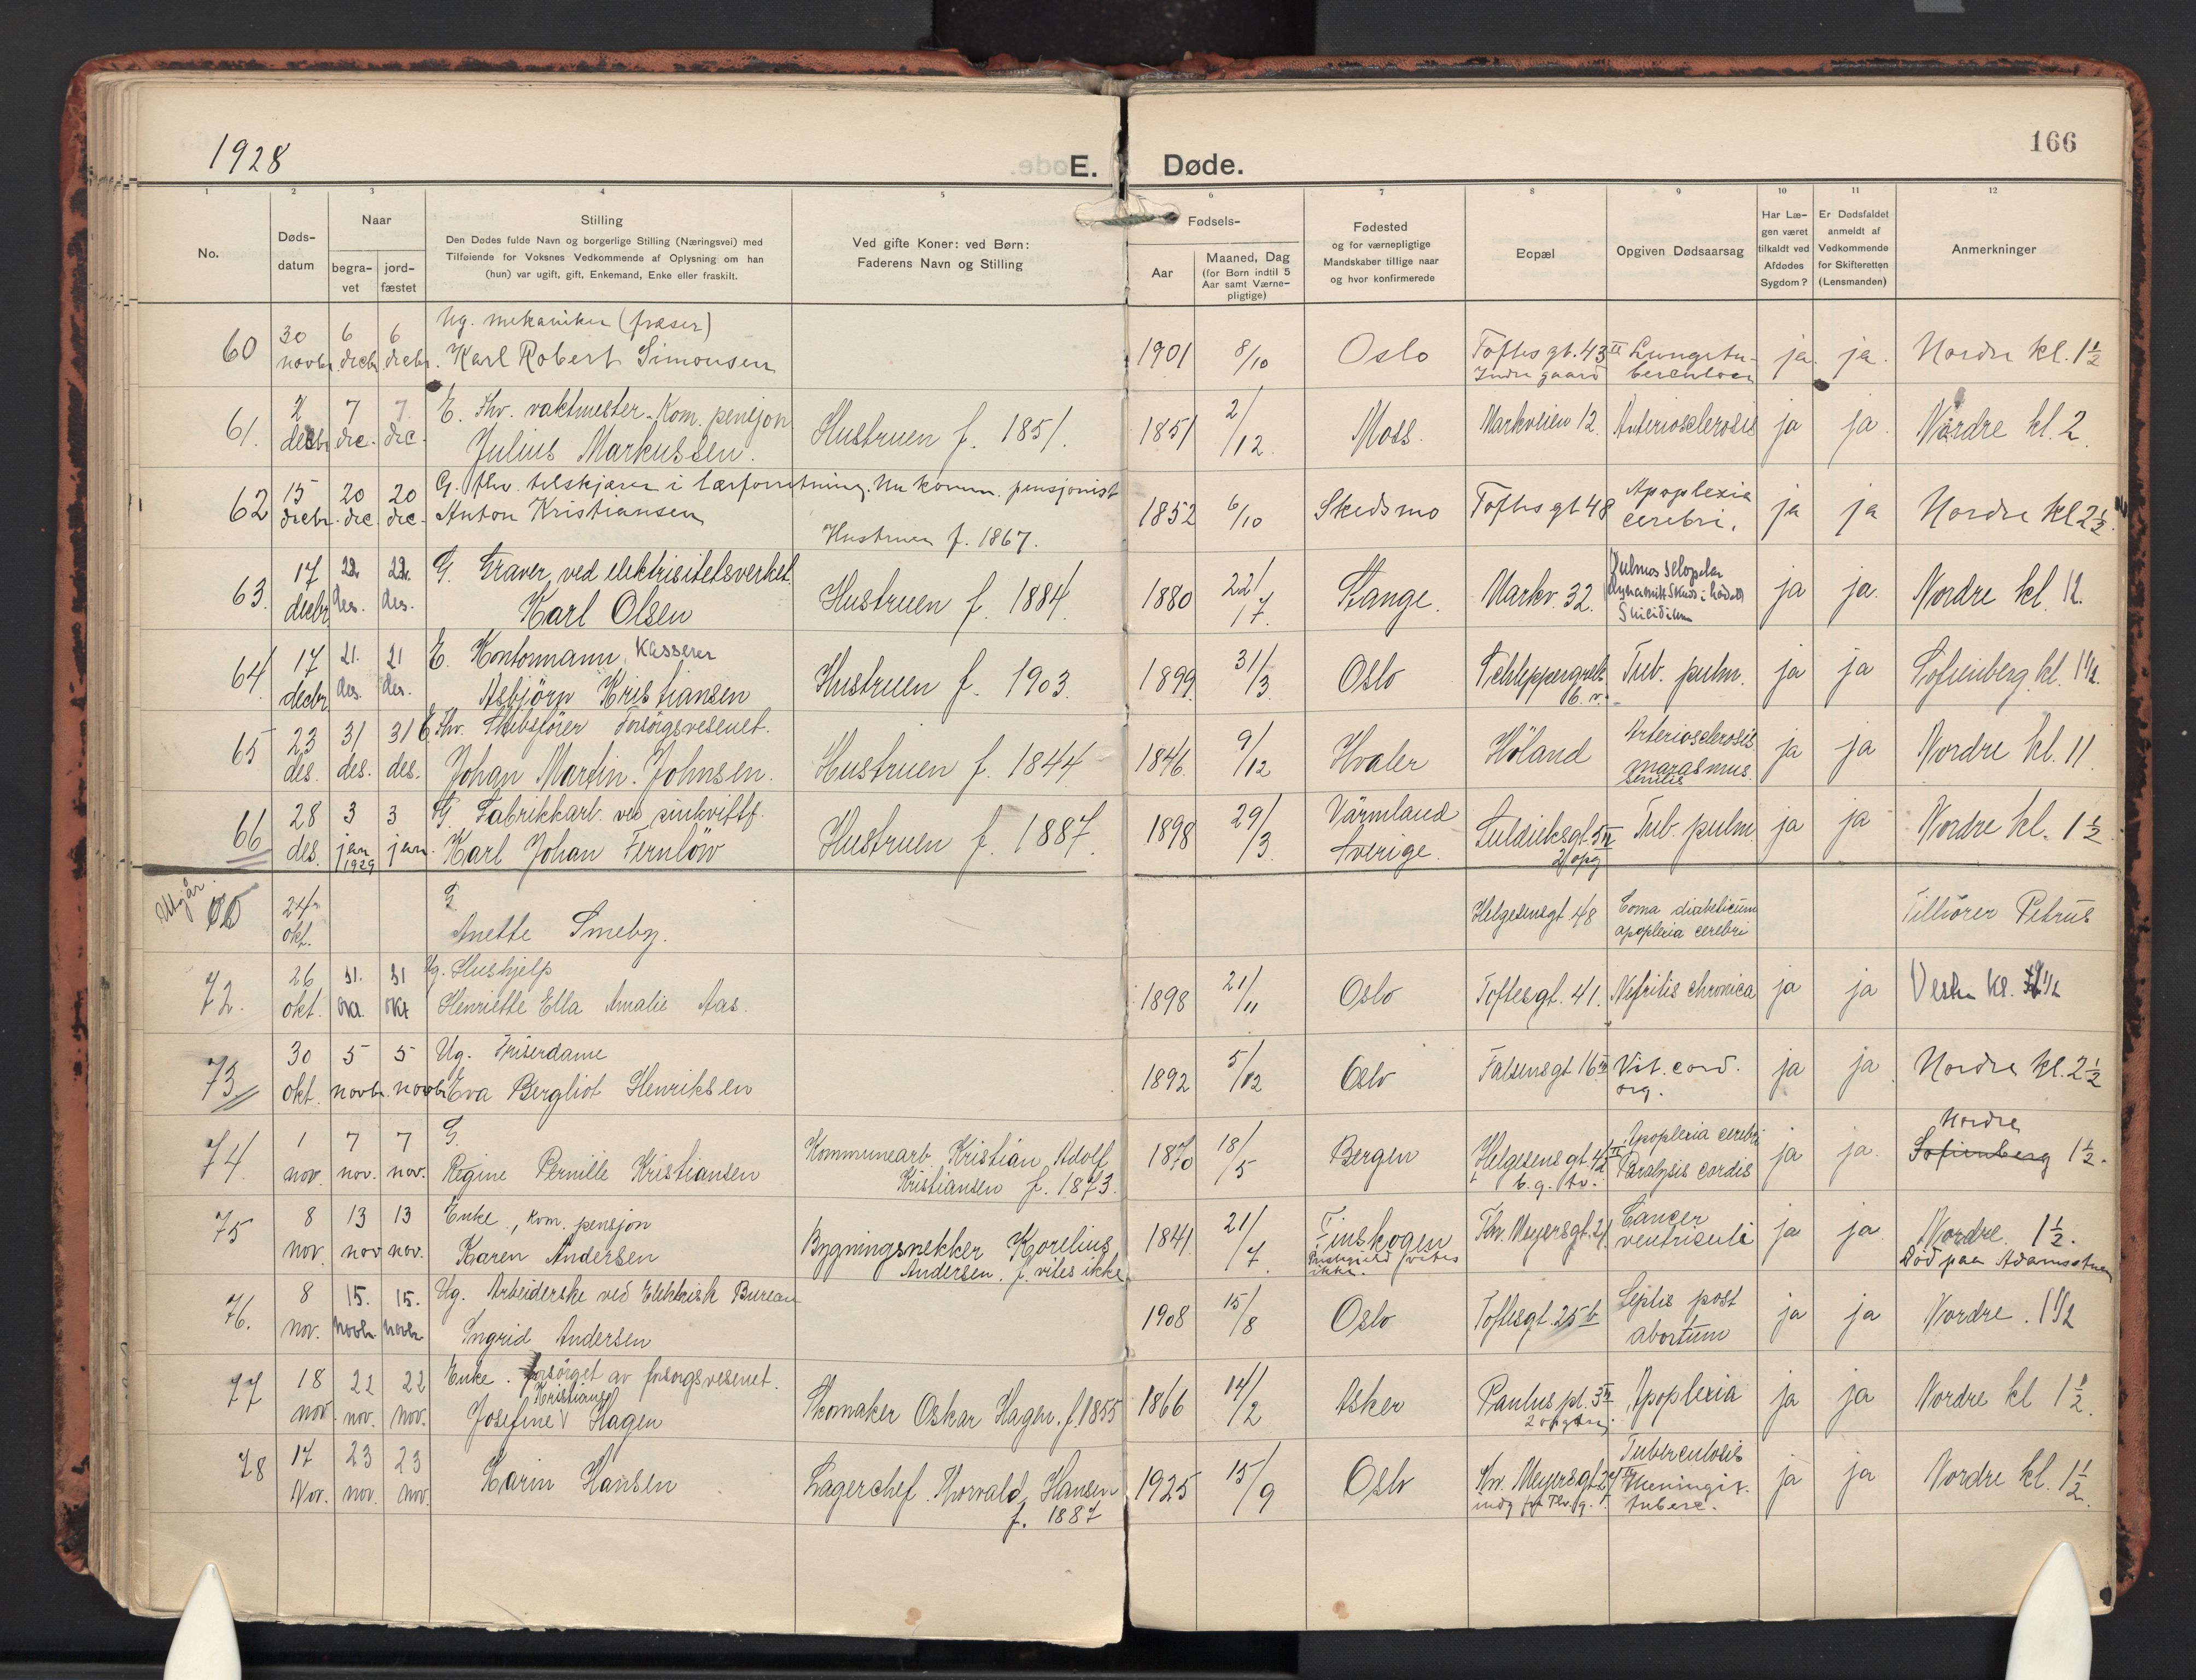 166
1928
E. Døde.
1 2 3 4 5 6 7 8 9 10 11 12
No.
Døds-
datum
Naar
begra-
vet
jord-
fæstet
Stilling
Den Dødes fulde Navn og borgerlige Stilling (Næringsvei) med
Tilføiende for Voksnes Vedkommende af Oplysning om han
(hun) var ugift, gift, Enkemand, Enke eller fraskilt.
Ved gifte Koner: ved Børn:
Faderens Navn og Stilling
Fødsels-
Aar
Maaned, Dag
(for Børn indtil 5
Aar samt Værne-
pligtige)
Fødested
og for værnepligtige
Mandskaber tillige naar
og hvor konfirmerede
Bopæl
Opgiven Dødsaarsag
Har Læ-
gen været
tilkaldt ved
Afdødes
Sygdom?
Er Dødsfaldet
anmeldt af
Vedkommende
for Skifteretten
(Lensmanden)
Anmerkninger
60 30 novbr. 6 decbr. 6 decbr. Ug. mekaniker (fræser)
Karl Robert Simonsen 1901 8/10 Oslo Toftes gt. 43 II Indre gaard Lungetu-
berculose ja. ja. Nordre kl. 1½
61. 2 decbr. 7 dec. 7. dec. E. Fhv. vaktmester. Kom. pensjon
Julius Markussen. Hustruen f. 1851. 1851 2/12 Moss. Markveien 12. Arteriosclerosis ja ja. Nordre kl. 2
62 15 decbr. 20 dec. 20 dec. G. fhv. tilskjærer i lærforretning. Nu komm. pensjonist
Anton Kristiansen Hustruen f. 1867. 1852 6/10 Skedsmo Toftes gt 48 Apoplexia
cerebri. ja ja Nordre kl 2½.
63. 17 decbr. 22. des. 22. des. G. Graver ved elektrisitetsverket.
Karl Olsen Hustruen f. 1884. 1880 22/7. Stange. Markv. 32. Vulnus sclopetar
Dynamitskud i hodet
Suicidium ja ja. Nordre kl. 12.
64. 17 decbr. 21. des. 21 des. E. Kontormann, Kasserer
Asbjörn Kristiansen Hustruen f. 1903. 1899. 31/3 Oslo Schleppegrells Tub. pulm. ja ja Sofienberg kl. 1½.
65 23 des. 31 des. 31 des. E. Fhv. Forsörgsvesenet.
Johan Martin Johnsen. Hustruen f. 1844 1846. 9/12 Hvaler Höland Arteriosclerosis
marasmus
senilis ja ja Nordre kl. 11.
66 28 des. 3 jan 1929 3 jan. G. Fabrikkarb. ved sinkvittf.
Karl Johan Fernlöw Hustruen f. 1887. 1898 29/3. Värmland
Sverige. 2 opg Tub. pulm ja ja Nordre kl. 1½
Utgår. 24 okt. G
Anette Smeby. Helgesensgt. 48 Coma diabeticum
apoplexia cerebri Tilhörer Petrus
72. 26 okt. 31. okt. 31 okt Ug. Hushjelp
Henriette Ella Amalie Aas. 1898 21/11 Oslo Toftesgt. 41. Nefritis chronica ja ja Vestre kl. 1½
73 30 okt. 5 novbr. 5 novbr Ug. Friserdame
Eva Bergliot Henriksen 1892 5/12 Oslo Falsensgt 16 III Vit. cord.
org. ja ja Nordre kl. 2½
74. 1 nov. 7 nov. 7 nov. G.
Regine Pernille Kristiansen Kommunearb. Kristian Adolf
Kristiansen f. 1873. 1870 18/5 Bergen Helgesens gt. Apoplexia cerebri
Paralysis cordis ja ja. Nordre
Sofienberg 1½.
75 8 nov. 13 nov 13 nov. Enke., kom. pensjon
Karen Andersen Bygningssnekker Korelius
Andersen. f. vites ikke 1841 21/7. Finskogen
Prestegjeld vites
ikke. Thv. Meyersgt. 21 Cancer
ventriculi ja ja. Nordre. 1½.
Död paa Adamsstuen
76. 8 nov. 15. novbr 15. novbr Ug. Arbeiderske ved Elektrisk Bureau
Ingrid Andersen 1908 15/8 Oslo Toftesgt. 25 b Septis post
abortum ja ja Nordre. 1½
77 18 nov 22 nov. 22 nov. Enke. forsörget av forsorgsvesenet.
Kristiane
Josefine V Hagen Skomaker Oskar Hagen. f. 1855 1866 14/2 Asker Paulus pl. 3 IV
2 opgang Apoplexia ja ja Nordre kl 1½.
78 17 Nov. 23 nov. 23 nov. Karin Hansen Lagerchef Thorvald Hansen
f. 1887 1925 15/9 Oslo Thv. Meyersgt Tuberculosis
Meningit.
tuberc. ja ja Nordre kl. 1½.